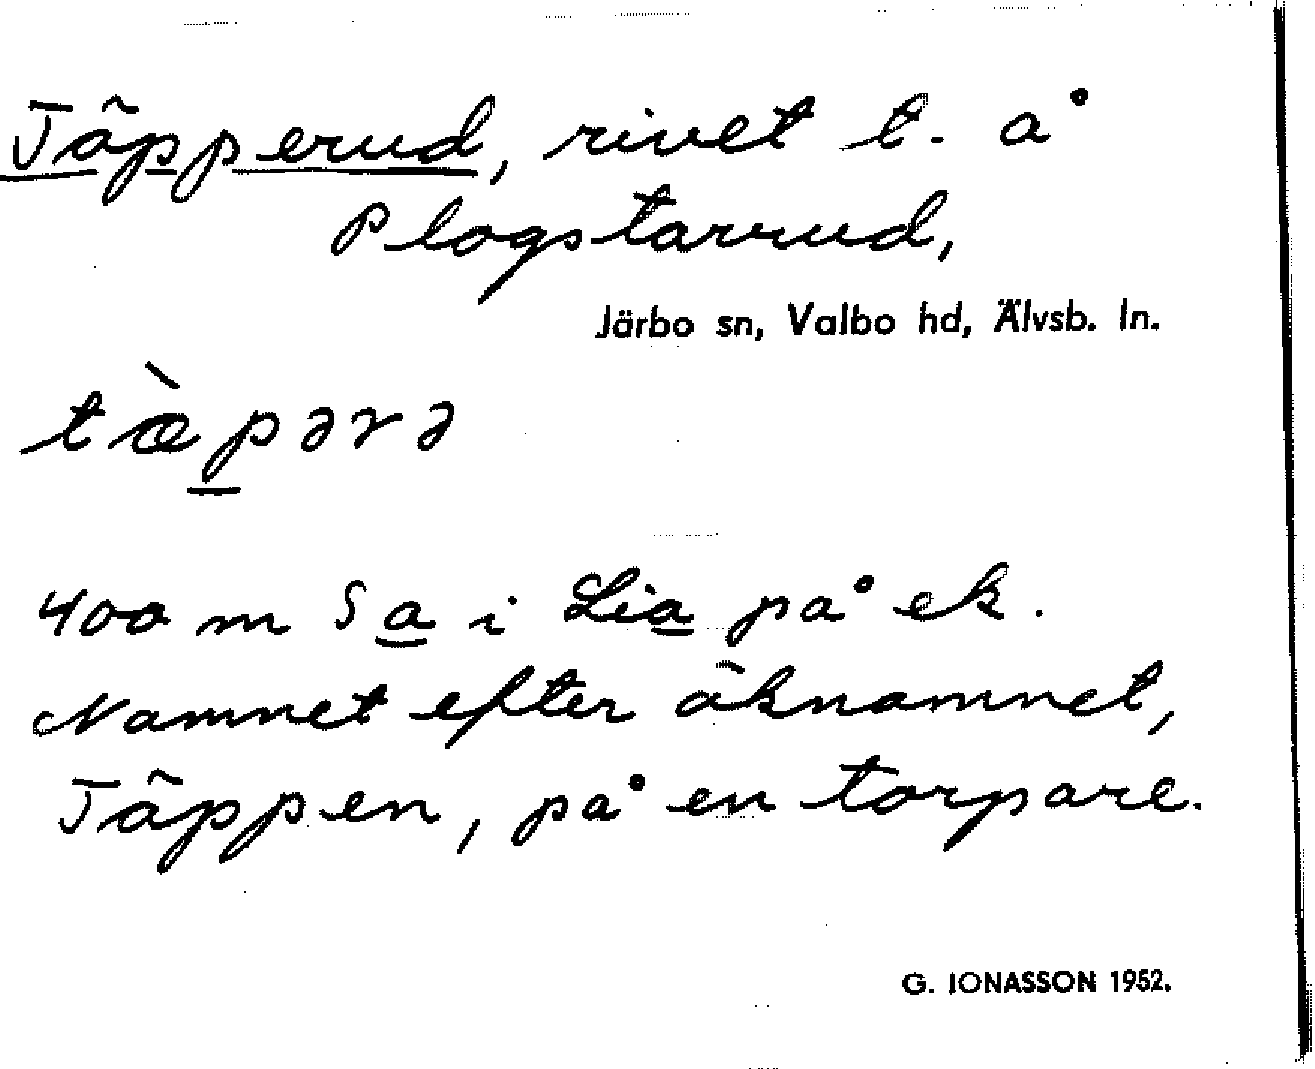 Täpperud, rivet t. å
Plogstarrud,
Järbo sn, Valbo hd, Älvsb. ln.
tæ̀pərə
400 m S a i Lia på ek.
Namnet efter öknamnet,
Täppen, på en torpare.
G. JONASSON 1952.